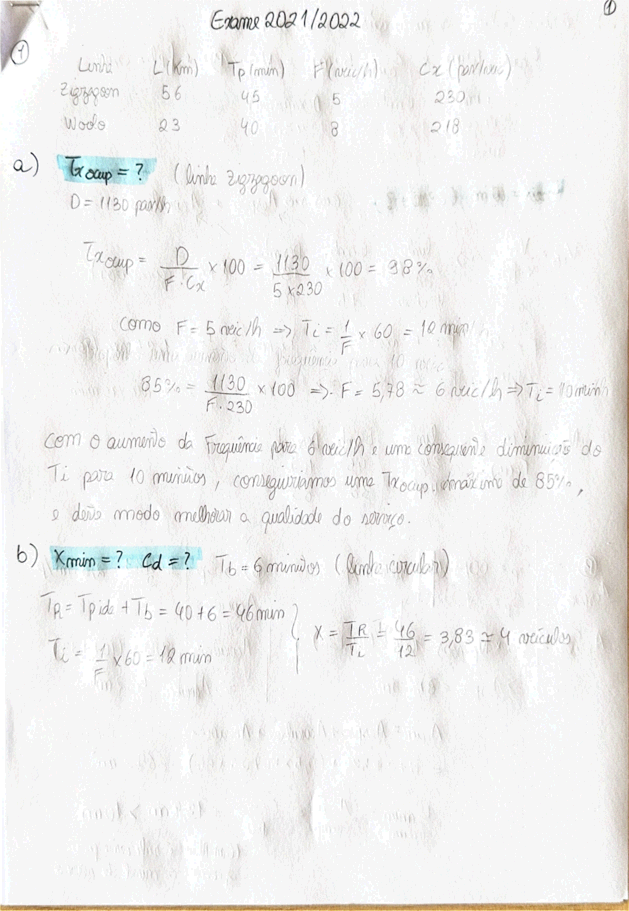 Exame 2021/2022
①
①
Linha L(Km) Tp(min) F(veic/h) Cx(pax/veic)
Zigzagoon 56 45 5 230
Wodo 23 40 8 218
a) Txocup = ? (linha zigzagoon)
D = 1130 pax/h
Txocup = D / F·Cx × 100 = 1130 / 5×230 × 100 = 98%
como F = 5 veic/h ⇒ Ti = 1/F × 60 = 12 min
85% = 1130 / F·230 × 100 ⇒ F = 5,78 ≈ 6 veic/h ⇒ Ti = 10 min
com o aumento da Frequência para 6 veic/h e uma consequente diminuição do
Ti para 10 minutos, conseguiríamos uma Txocup. máxima de 85%,
e deste modo melhorar a qualidade do serviço.
b) Xmin = ? Cd = ? Tb = 6 minutos (linha circular)
TR = Tp ida + Tb = 40 + 6 = 46 min
Ti = 1/F × 60 = 12 min
X = TR/Ti = 46/12 = 3,83 ≈ 4 veículos